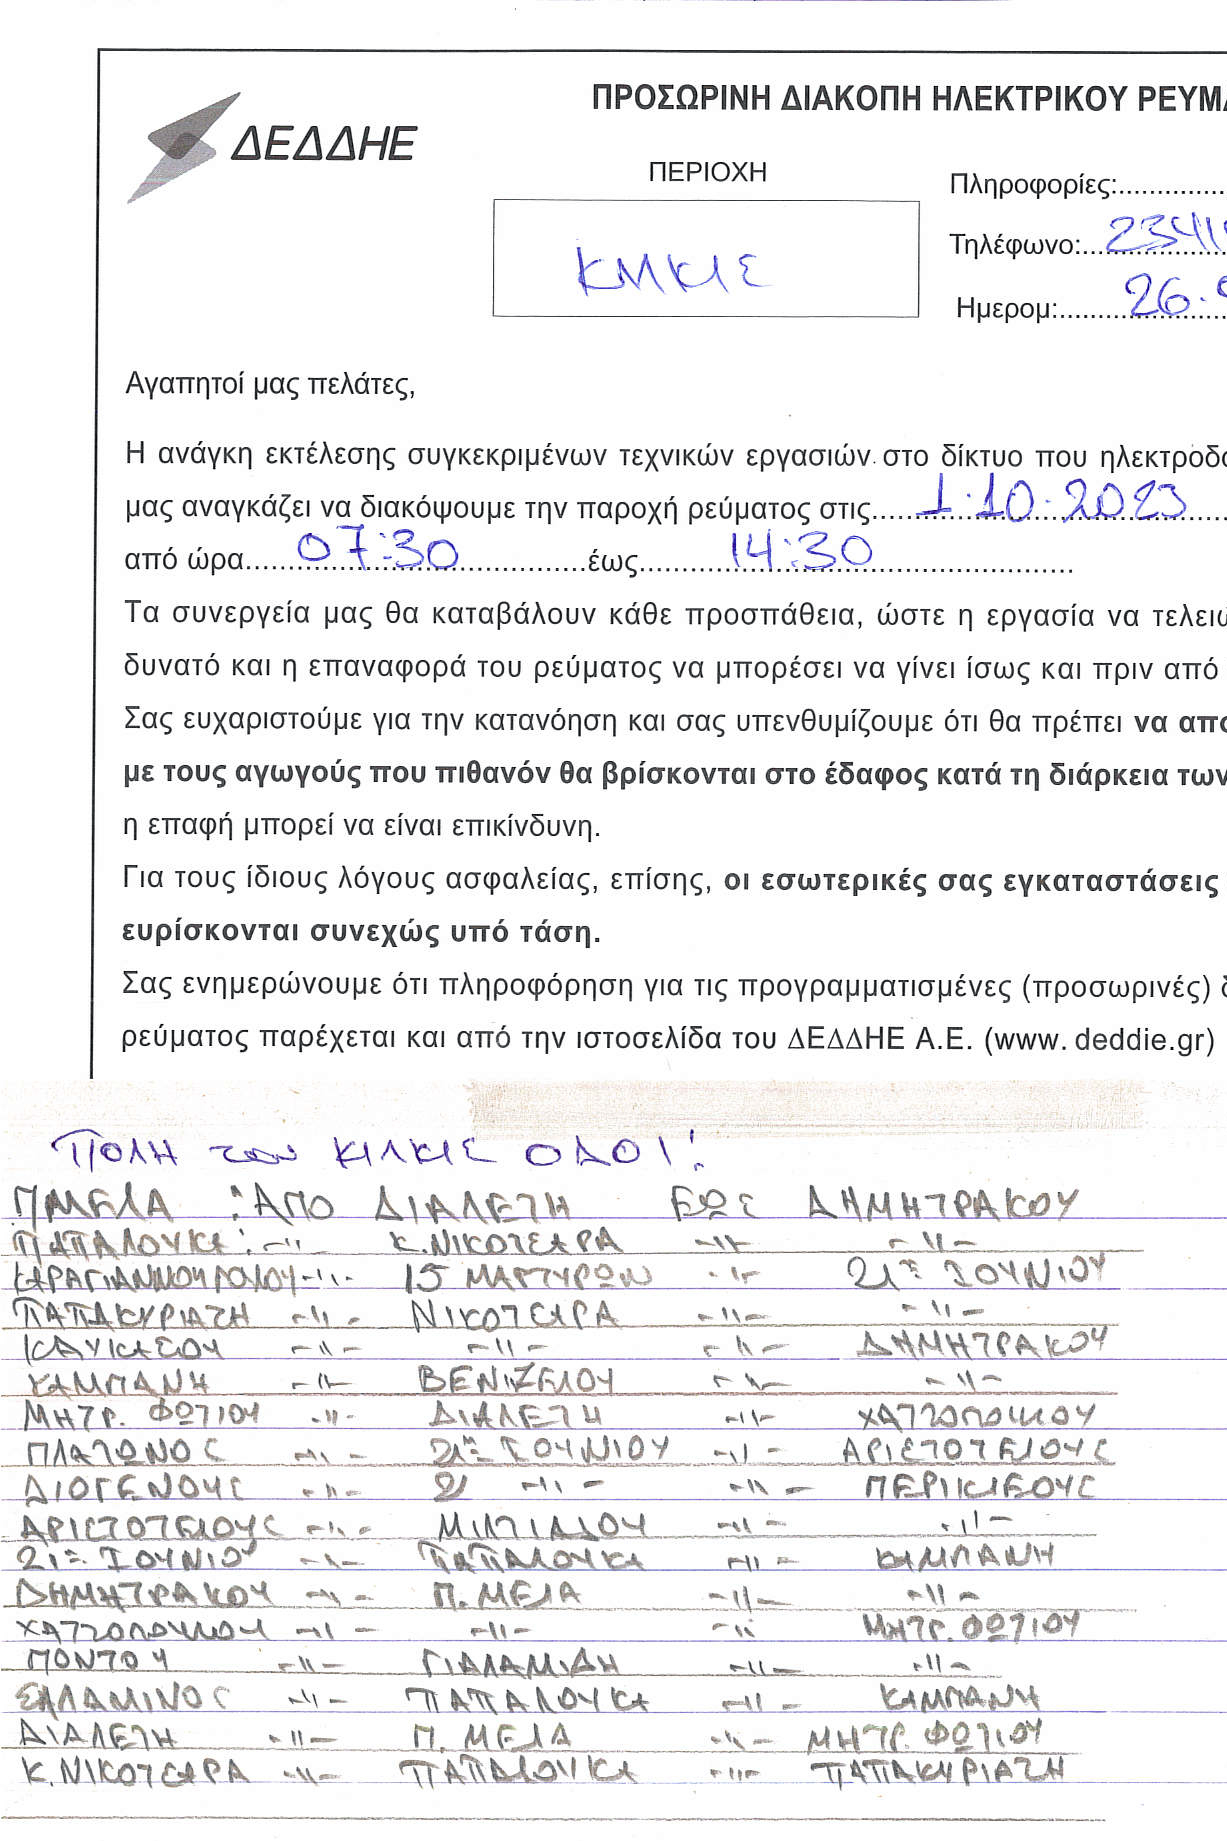 ΠΡΟΣΩΡΙΝΗ ΔΙΑΚΟΠΗ ΗΛΕΚΤΡΙΚΟΥ ΡΕΥΜΑ
ΔΕΔΔΗΕ
ΠΕΡΙΟΧΗ
ΚΙΛΚΙΣ
Πληροφορίες:
Τηλέφωνο: 2341
Ημερομ: 26.
Αγαπητοί μας πελάτες,
Η ανάγκη εκτέλεσης συγκεκριμένων τεχνικών εργασιών στο δίκτυο που ηλεκτροδο
μας αναγκάζει να διακόψουμε την παροχή ρεύματος στις 1.10.2023
από ώρα 07:30 έως 14:30
Τα συνεργεία μας θα καταβάλουν κάθε προσπάθεια, ώστε η εργασία να τελειώ
δυνατό και η επαναφορά του ρεύματος να μπορέσει να γίνει ίσως και πριν από
Σας ευχαριστούμε για την κατανόηση και σας υπενθυμίζουμε ότι θα πρέπει να απο
με τους αγωγούς που πιθανόν θα βρίσκονται στο έδαφος κατά τη διάρκεια των
η επαφή μπορεί να είναι επικίνδυνη.
Για τους ίδιους λόγους ασφαλείας, επίσης, οι εσωτερικές σας εγκαταστάσεις
ευρίσκονται συνεχώς υπό τάση.
Σας ενημερώνουμε ότι πληροφόρηση για τις προγραμματισμένες (προσωρινές) δ
ρεύματος παρέχεται και από την ιστοσελίδα του ΔΕΔΔΗΕ Α.Ε. (www. deddie.gr)
ΠΟΛΗ του ΚΙΛΚΙΣ ΟΔΟΙ:
Π.ΜΕΛΑ : ΑΠΟ ΔΙΑΛΕΤΗ ΕΩΣ ΔΗΜΗΤΡΑΚΟΥ
ΠΑΠΑΛΟΥΚΑ : -"- Κ.ΝΙΚΟΤΣΑΡΑ -"- -"-
ΚΑΡΑΓΙΑΝΝΟΠΟΥΛΟΥ -"- 15 ΜΑΡΤΥΡΩΝ -"- 21ης ΙΟΥΝΙΟΥ
ΠΑΠΑΚΥΡΙΑΖΗ -"- ΝΙΚΟΤΣΑΡΑ -"- -"-
ΚΑΥΚΑΣΟΥ -"- -"- -"- ΔΗΜΗΤΡΑΚΟΥ
ΚΑΜΠΑΝΗ -"- ΒΕΝΙΖΕΛΟΥ -"- -"-
ΜΗΤΡ. ΦΩΤΙΟΥ -"- ΔΙΑΛΕΤΗ -"- ΧΑΤΖΟΠΟΥΛΟΥ
ΠΛΑΤΩΝΟΣ -"- 21ης ΙΟΥΝΙΟΥ -"- ΑΡΙΣΤΟΤΕΛΟΥΣ
ΔΙΟΓΕΝΟΥΣ -"- 21 -"- -"- ΠΕΡΙΚΛΕΟΥΣ
ΑΡΙΣΤΟΤΕΛΟΥΣ -"- ΜΙΛΤΙΑΔΟΥ -"- -"-
21ης ΙΟΥΝΙΟΥ -"- ΠΑΠΑΛΟΥΚΑ -"- ΚΑΜΠΑΝΗ
ΔΗΜΗΤΡΑΚΟΥ -"- Π. ΜΕΛΑ -"- -"-
ΧΑΤΖΟΠΟΥΛΟΥ -"- -"- -"- ΜΗΤΡ. ΦΩΤΙΟΥ
ΠΟΝΤΟΥ -"- ΓΙΑΛΑΜΙΔΗ -"- -"-
ΣΑΛΑΜΙΝΟΣ -"- ΠΑΠΑΛΟΥΚΑ -"- ΚΑΜΠΑΝΗ
ΔΙΑΛΕΤΗ -"- Π. ΜΕΛΑ -"- ΜΗΤΡ. ΦΩΤΙΟΥ
Κ.ΝΙΚΟΤΣΑΡΑ -"- ΠΑΠΑΛΟΥΚΑ -"- ΠΑΠΑΚΥΡΙΑΖΗ